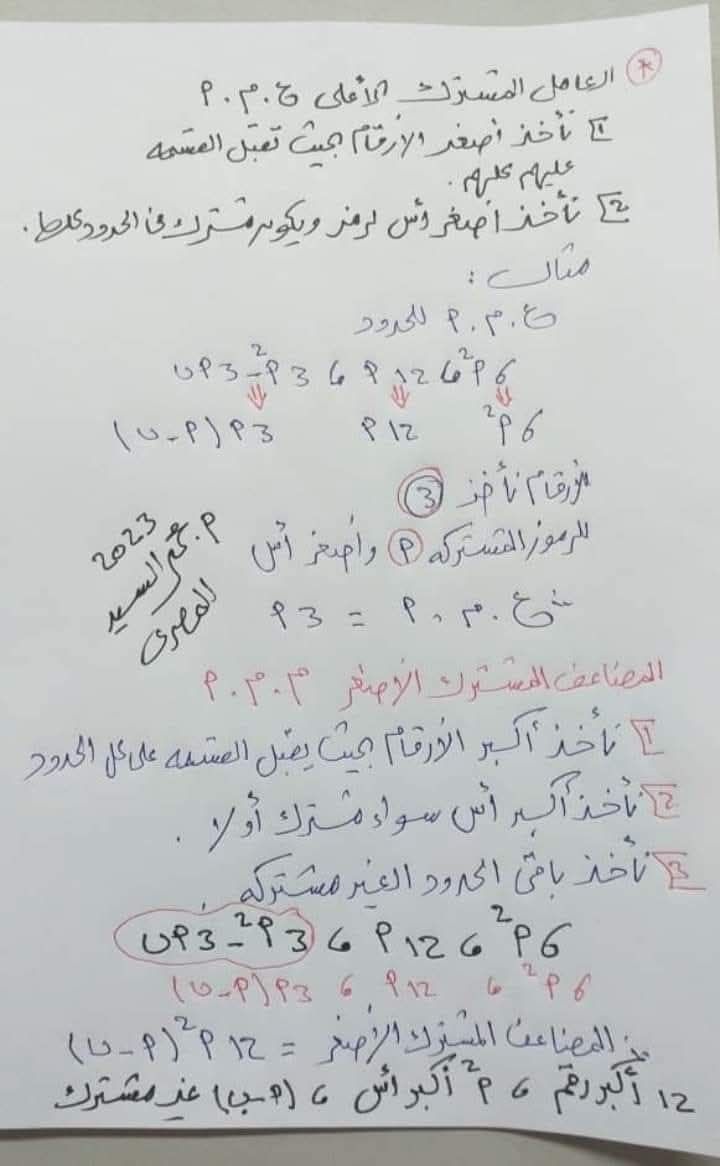 * العامل المشترك الأعلى ع.م.م
1 نأخذ أصغر الأرقام بحيث تقبل القسمة
عليهم كلهم.
2 نأخذ أصغر أس لرمز ويكون مشترك فى الحدود كلها.
مثال :
ع.م.م للحدود
6م²، 12م، 3م² - 3م ن
6م² 12م 3م(م - ن)
الأرقام نأخذ 3
للرموز المشتركة م وأصغر أس
ع.م.م = 3م
2023
السيد
المصرى
المضاعف المشترك الأصغر م.م.م
1 نأخذ أكبر الأرقام بحيث يقبل القسمة على كل الحدود
2 نأخذ أكبر أس سواء مشترك أولا.
3 نأخذ باقى الحدود الغير مشتركه.
6م²، 12م، 3م² - 3م ن
6م²، 12م، 3م(م - ن)
∴ المضاعف المشترك الأصغر = 12م²(م - ن)
12 أكبر رقم، م² أكبر أس، (م-ن) غير مشترك